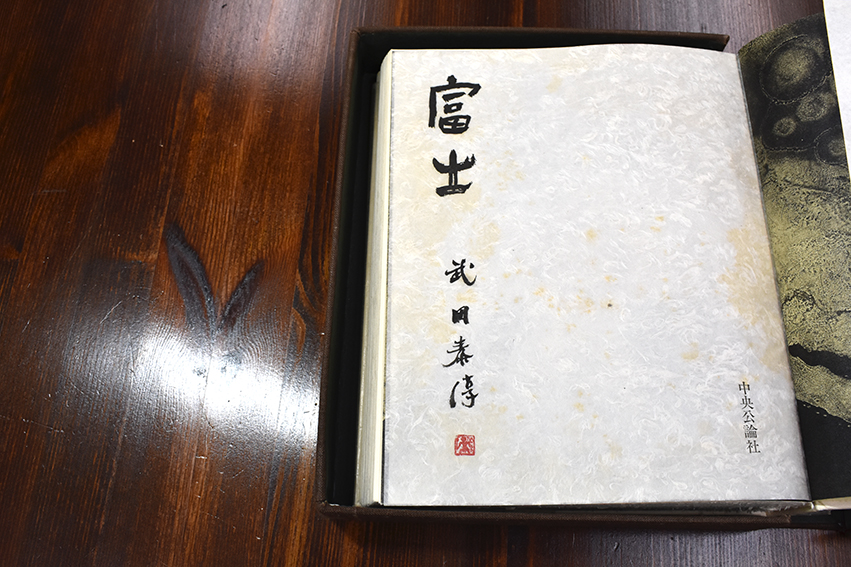 富士
武田泰淳
中央公論社